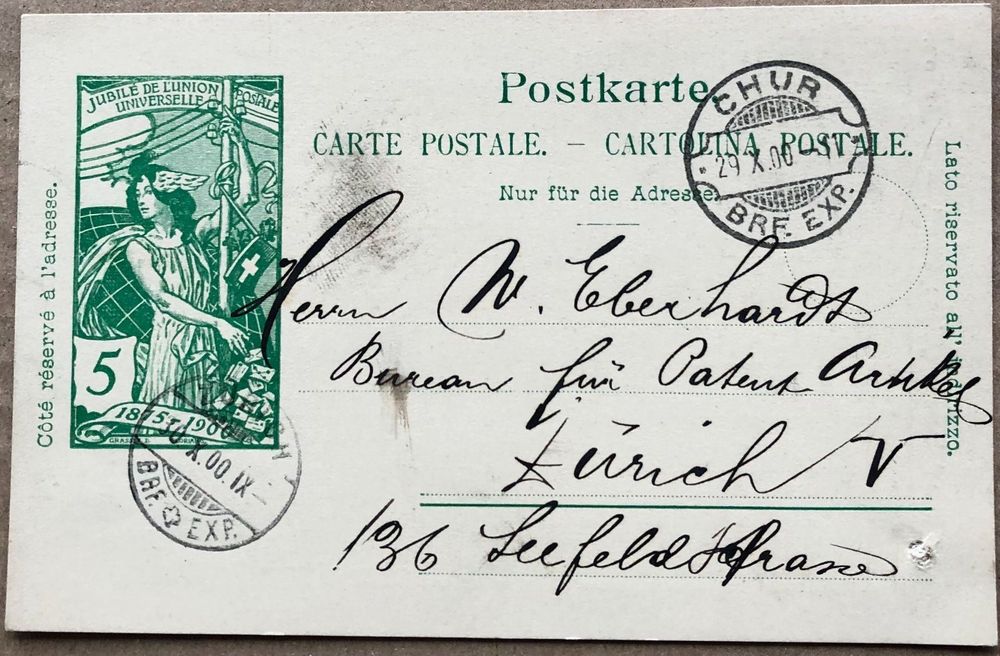 JUBILÉ DE L'UNION
UNIVERSELLE POSTALE
5
1875-1900
Postkarte.
CARTE POSTALE. — CARTOLINA POSTALE.
Nur für die Adresse.
Côté réservé à l'adresse.
Lato riservato all' indirizzo.
CHUR
29. X. 00 - XI
BRF. EXP.
Herrn W. Eberhardt
Bureau für Patent Artikel
Zürich V
136 Seefeldstrasse
ZÜRICH
30. X. 00. IX-
BRF. EXP.